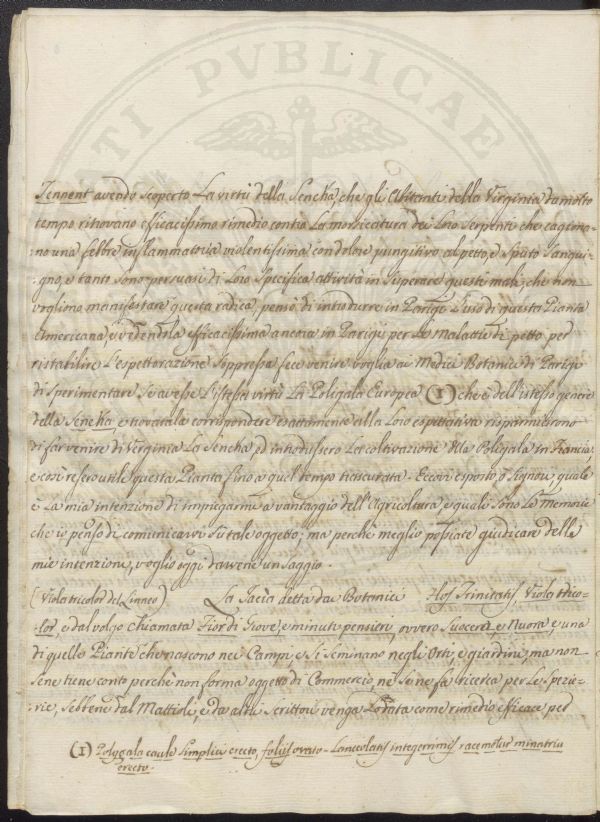 ATI PVBLICAE
Tennent avendo scoperto La virtù della Seneka che gli Abitanti della Virginia da molto
tempo ritrovano efficacissimo rimedio contro La morsicatura dei Loro Serpenti che cagiona-
-no una febbre inflammatoria violentissima con dolore pungitivo al petto, e sputo sangui-
-gno, e tanto sono persuasi di Loro Specifica attività in superare questi mali, che non
vogliono manifestare questa radica, pensò di introdurre in Parigi L'uso di questa Pianta
Americana, e vedendola efficacissima ancora in Parigi per Le Malattie di petto per
ristabilire L'espettorazione Soppressa fece venire voglia ai Medici Botanici di Parigi
di sperimentare se avesse L'istessa virtù La Poligala Europea (1) che è dell'istesso genere
della Seneka e trovatala corrispondere esattamente alla Loro espettativa risparmiarono
di far venire di Virginia La Seneka, ed introdussero La coltivazione della Poligala in Francia,
e così resero utile questa Pianta fino a quel tempo trascurata. Eccovi esposto, o Signori, quale
è La mia intenzione di impiegarmi a vantaggio dell'Agricoltura, e quali sono Le Memorie
che io penso di comunicarvi su tale oggetto; ma perchè meglio possiate giudicare delle
mie intenzioni, voglio oggi darvene un saggio.
(Viola tricolor del Linneo) La Jacea detta dai Botanici Flos Trinitatis, Viola trico-
-lor, e dal volgo chiamata Fior di Giove, e minuti pensieri, ovvero Suocera, e Nuora, e una
di quelle Piante che nascono nei Campi, e si seminano negli Orti, e giardini, ma non
se ne tiene conto perchè non forma oggetto di Commercio, ne se ne fa ricerca per Le Spezie-
-rie, sebbene dal Mattioli, e da altri scrittori venga Lodata come rimedio efficace per
(1) Polygala caule simplici erecto, foliis ovato-Lanceolatis integerrimis racemo
erecto.